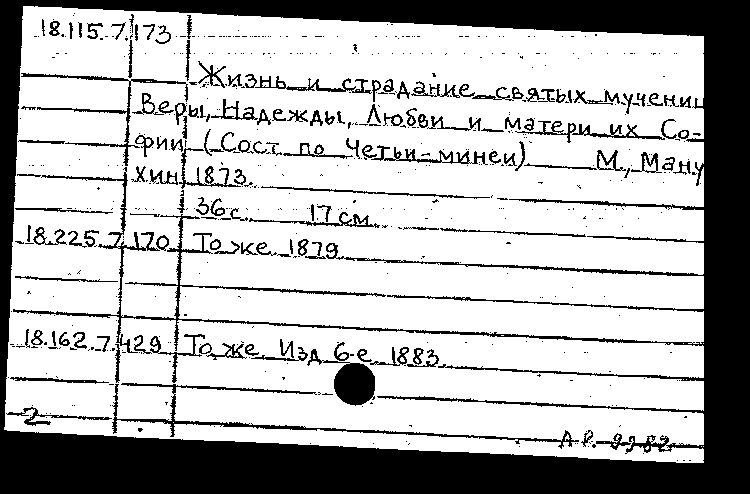 18.115.7.173
Жизнь и страдание святых мучениц
Веры, Надежды, Любви и матери их Со-
фии (Сост по Четьи-минеи) М., Ману
хин 1873.
36 с. 17 см.
18.225.7.170 То же 1879
18.162.7.429 То же. Изд 6-е 1883.
2